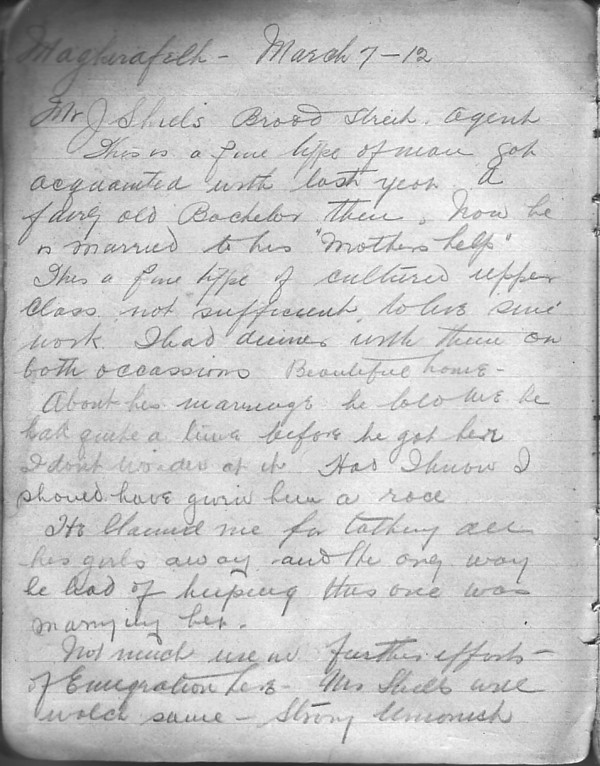 Magherafelt - March 7 - 12
Mr J Shiels Broad Street. Agent
This is a fine type of man got
acquainted with last year a
fairly old Bachelor then. Now he
is married to his "Mothers help"
This a fine type of cultured upper
class not sufficient to live sine
work I had dinner with them on
both occassions Beautiful home -
About his marriage he told me he
had quite a time before he got her
I dont wonder at it Had I know I
should have givin him a race
He blamed me for taking all
his girls away and the only way
he had of keeping this one was
marrying her.
Not much use in further efforts -
of Emigration here - Mr Shiels will
watch same - Strong Unionist